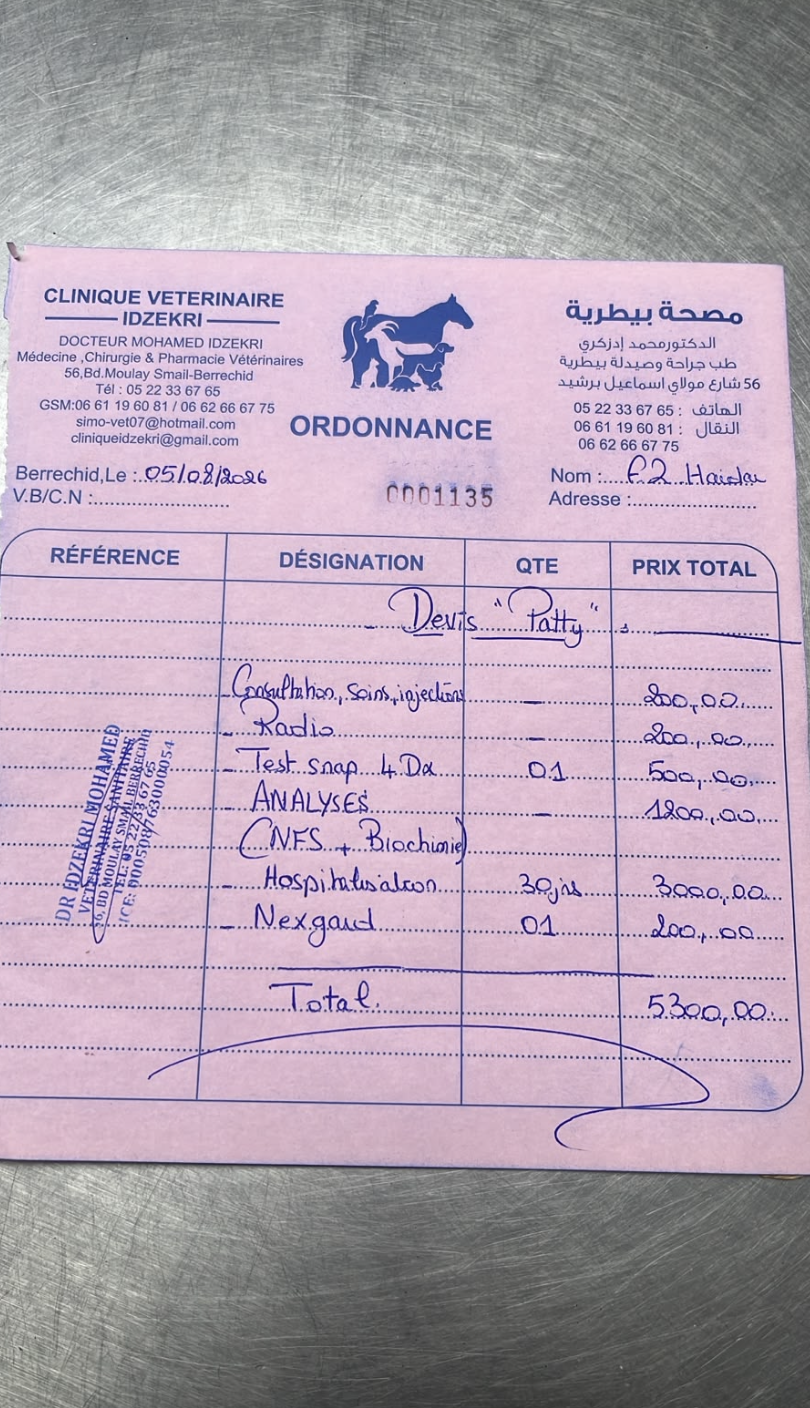 CLINIQUE VETERINAIRE
IDZEKRI
DOCTEUR MOHAMED IDZEKRI
Médecine ,Chirurgie & Pharmacie Vétérinaires
56,Bd.Moulay Smail-Berrechid
Tél : 05 22 33 67 65
GSM:06 61 19 60 81 / 06 62 66 67 75
simo-vet07@hotmail.com
cliniqueidzekri@gmail.com
ORDONNANCE
مصحة بيطرية
الدكتورمحمد إدزكري
طب جراحة وصيدلة بيطرية
56 شارع مولاي اسماعيل برشيد
الهاتف : 05 22 33 67 65
النقال : 06 61 19 60 81
06 62 66 67 75
Berrechid,Le : 05/08/2026
V.B/C.N :
0001135
Nom :
Adresse :
RÉFÉRENCE DÉSIGNATION QTE PRIX TOTAL
- Devis "Patty" :
- Consultation, soins, injections - 200,00
- Radio - 200,00
- Test snap 4 Dx 01 500,00
- ANALYSES - 1200,00
(NFS + Biochimie)
- Hospitalisation 30 jrs 3000,00
- Nexgard 01 200,00
Total 5300,00
DR IDZEKRI MOHAMED
VETERINAIRE SANITAIRE
56, BD MOULAY SMAIL BERRECHID
TEL: 05 22 33 67 65
ICE: 000508763000054